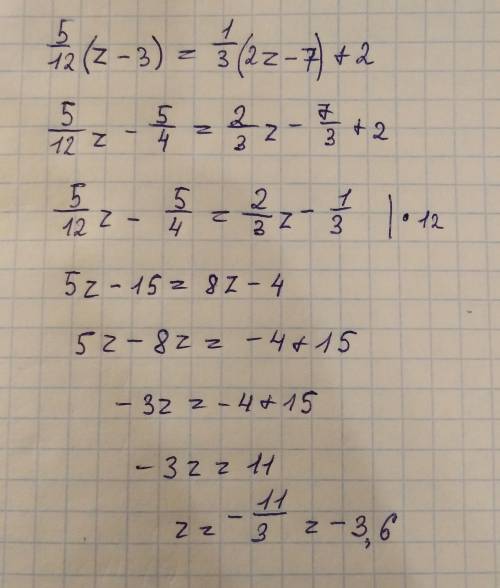 5/12(z - 3) = 1/3(2z - 7) + 2
5/12 z - 5/4 = 2/3 z - 7/3 + 2
5/12 z - 5/4 = 2/3 z - 1/3 | • 12
5z - 15 = 8z - 4
5z - 8z = -4 + 15
-3z = -4 + 15
-3z = 11
z = -11/3 = -3,6